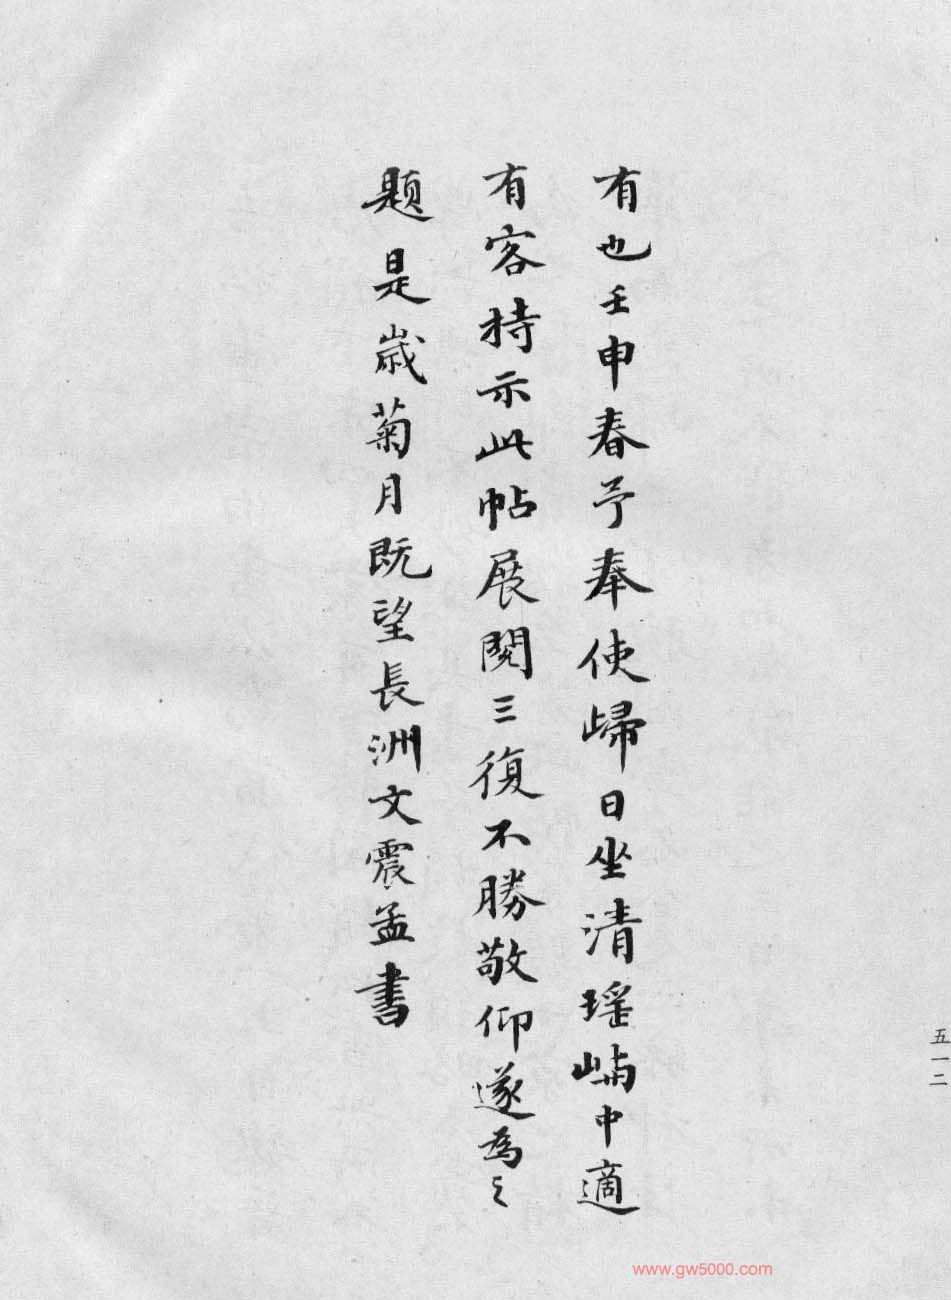 有也壬申春予奉使歸日坐清瑤嶼中適
有客持示此帖展閱三復不勝敬仰遂為之
題是歲菊月既望長洲文震孟書
五一二
www.gw5000.com